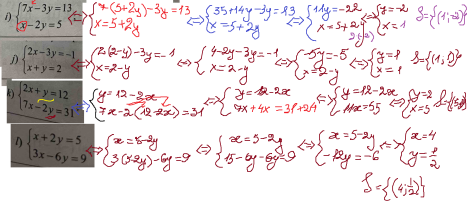 i) { 7x-3y=13 ; x-2y=5 <=> { 7(5+2y)-3y=13 ; x=5+2y <=> { 35+14y-3y=13 ; x=5+2y <=> { 11y=-22 ; x=5+2y <=> { y=-2 ; x=1 S={(1,-2)}
j) { 2x-3y=-1 ; x+y=2 <=> { 2(2-y)-3y=-1 ; x=2-y <=> { 4-2y-3y=-1 ; x=2-y <=> { -5y=-5 ; x=2-y <=> { y=1 ; x=1 S={(1,1)}
k) { 2x+y=12 ; 7x-2y=31 <=> { y=12-2x ; 7x-2(12-2x)=31 <=> { y=12-2x ; 7x+4x=31+24 <=> { y=12-2x ; 11x=55 <=> { y=2 ; x=5
l) { x+2y=5 ; 3x-6y=9 <=> { x=5-2y ; 3(5-2y)-6y=9 <=> { x=5-2y ; 15-6y-6y=9 <=> { x=5-2y ; -12y=-6 <=> { x=4 ; y=1/2
S={(4,1/2)}